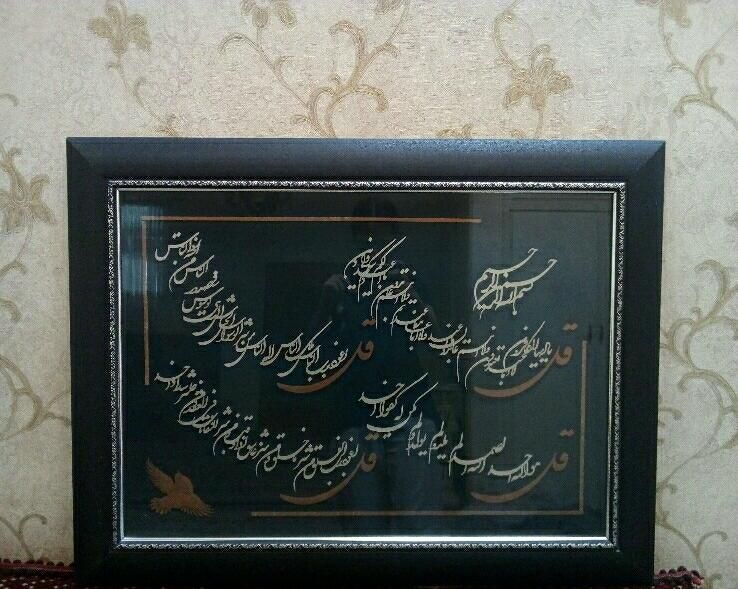 بسم الله الرحمن الرحیم
قل یا ایها الکافرون لا اعبد ما تعبدون و لا انتم عابدون ما اعبد و لا انا عابد ما عبدتم و لا انتم عابدون ما اعبد لکم دینکم ولی دین
قل هو الله احد الله الصمد لم یلد و لم یولد و لم یکن له کفوا احد
قل اعوذ برب الناس ملک الناس اله الناس من شر الوسواس الخناس الذی یوسوس فی صدور الناس من الجنة و الناس
قل اعوذ برب الفلق من شر ما خلق و من شر غاسق اذا وقب و من شر النفاثات فی العقد و من شر حاسد اذا حسد